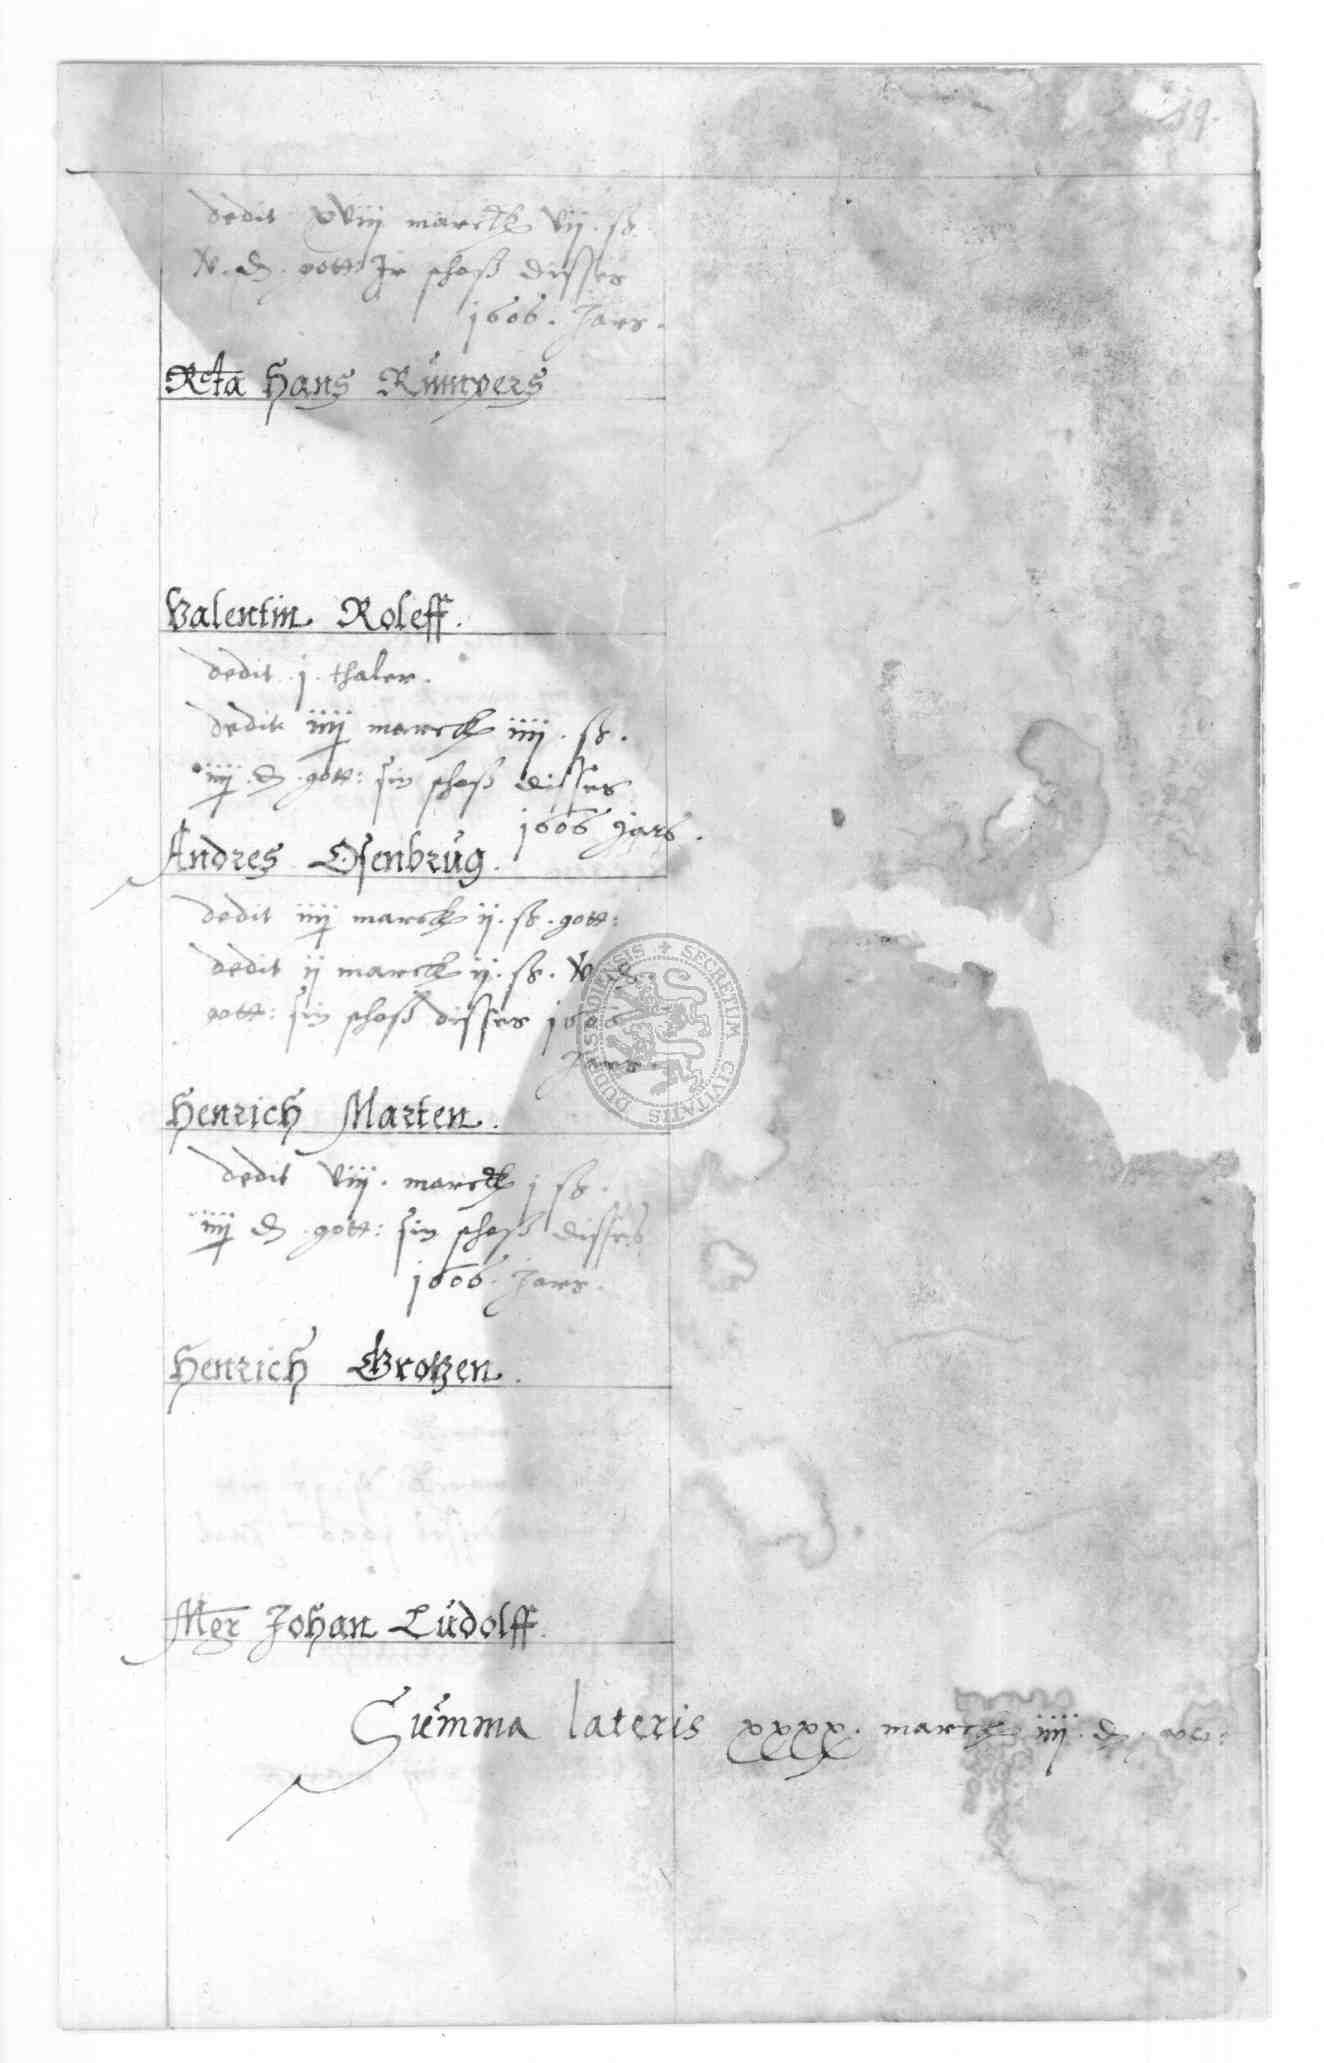 19.
dedit xviij marck vij. ß.
v. d. gott Ir schoß disses
1606. Jars.
Rcta Hans Rümpers
Valentin Roleff.
dedit .j. thaler.
dedit iiij marck iiij. ß.
iiij. d. gott: sin schoß disses
1606 Jars.
Andres Osenbrüg.
dedit iiij marck ij. ß. gott:
dedit ij marck ij. ß. v d.
gott: sin schoß disses 1606
Jars.
Henrich Marten.
dedit viij. marck j ß.
iiij d. gott: sin schoß disses
1606. Jars.
Henrich Grotzen.
Mer Johan Lüdolff.
Summa lateris xxxx. marck iiij. d.
SECRETUM CIVITATIS DUDERSTADIENSIS